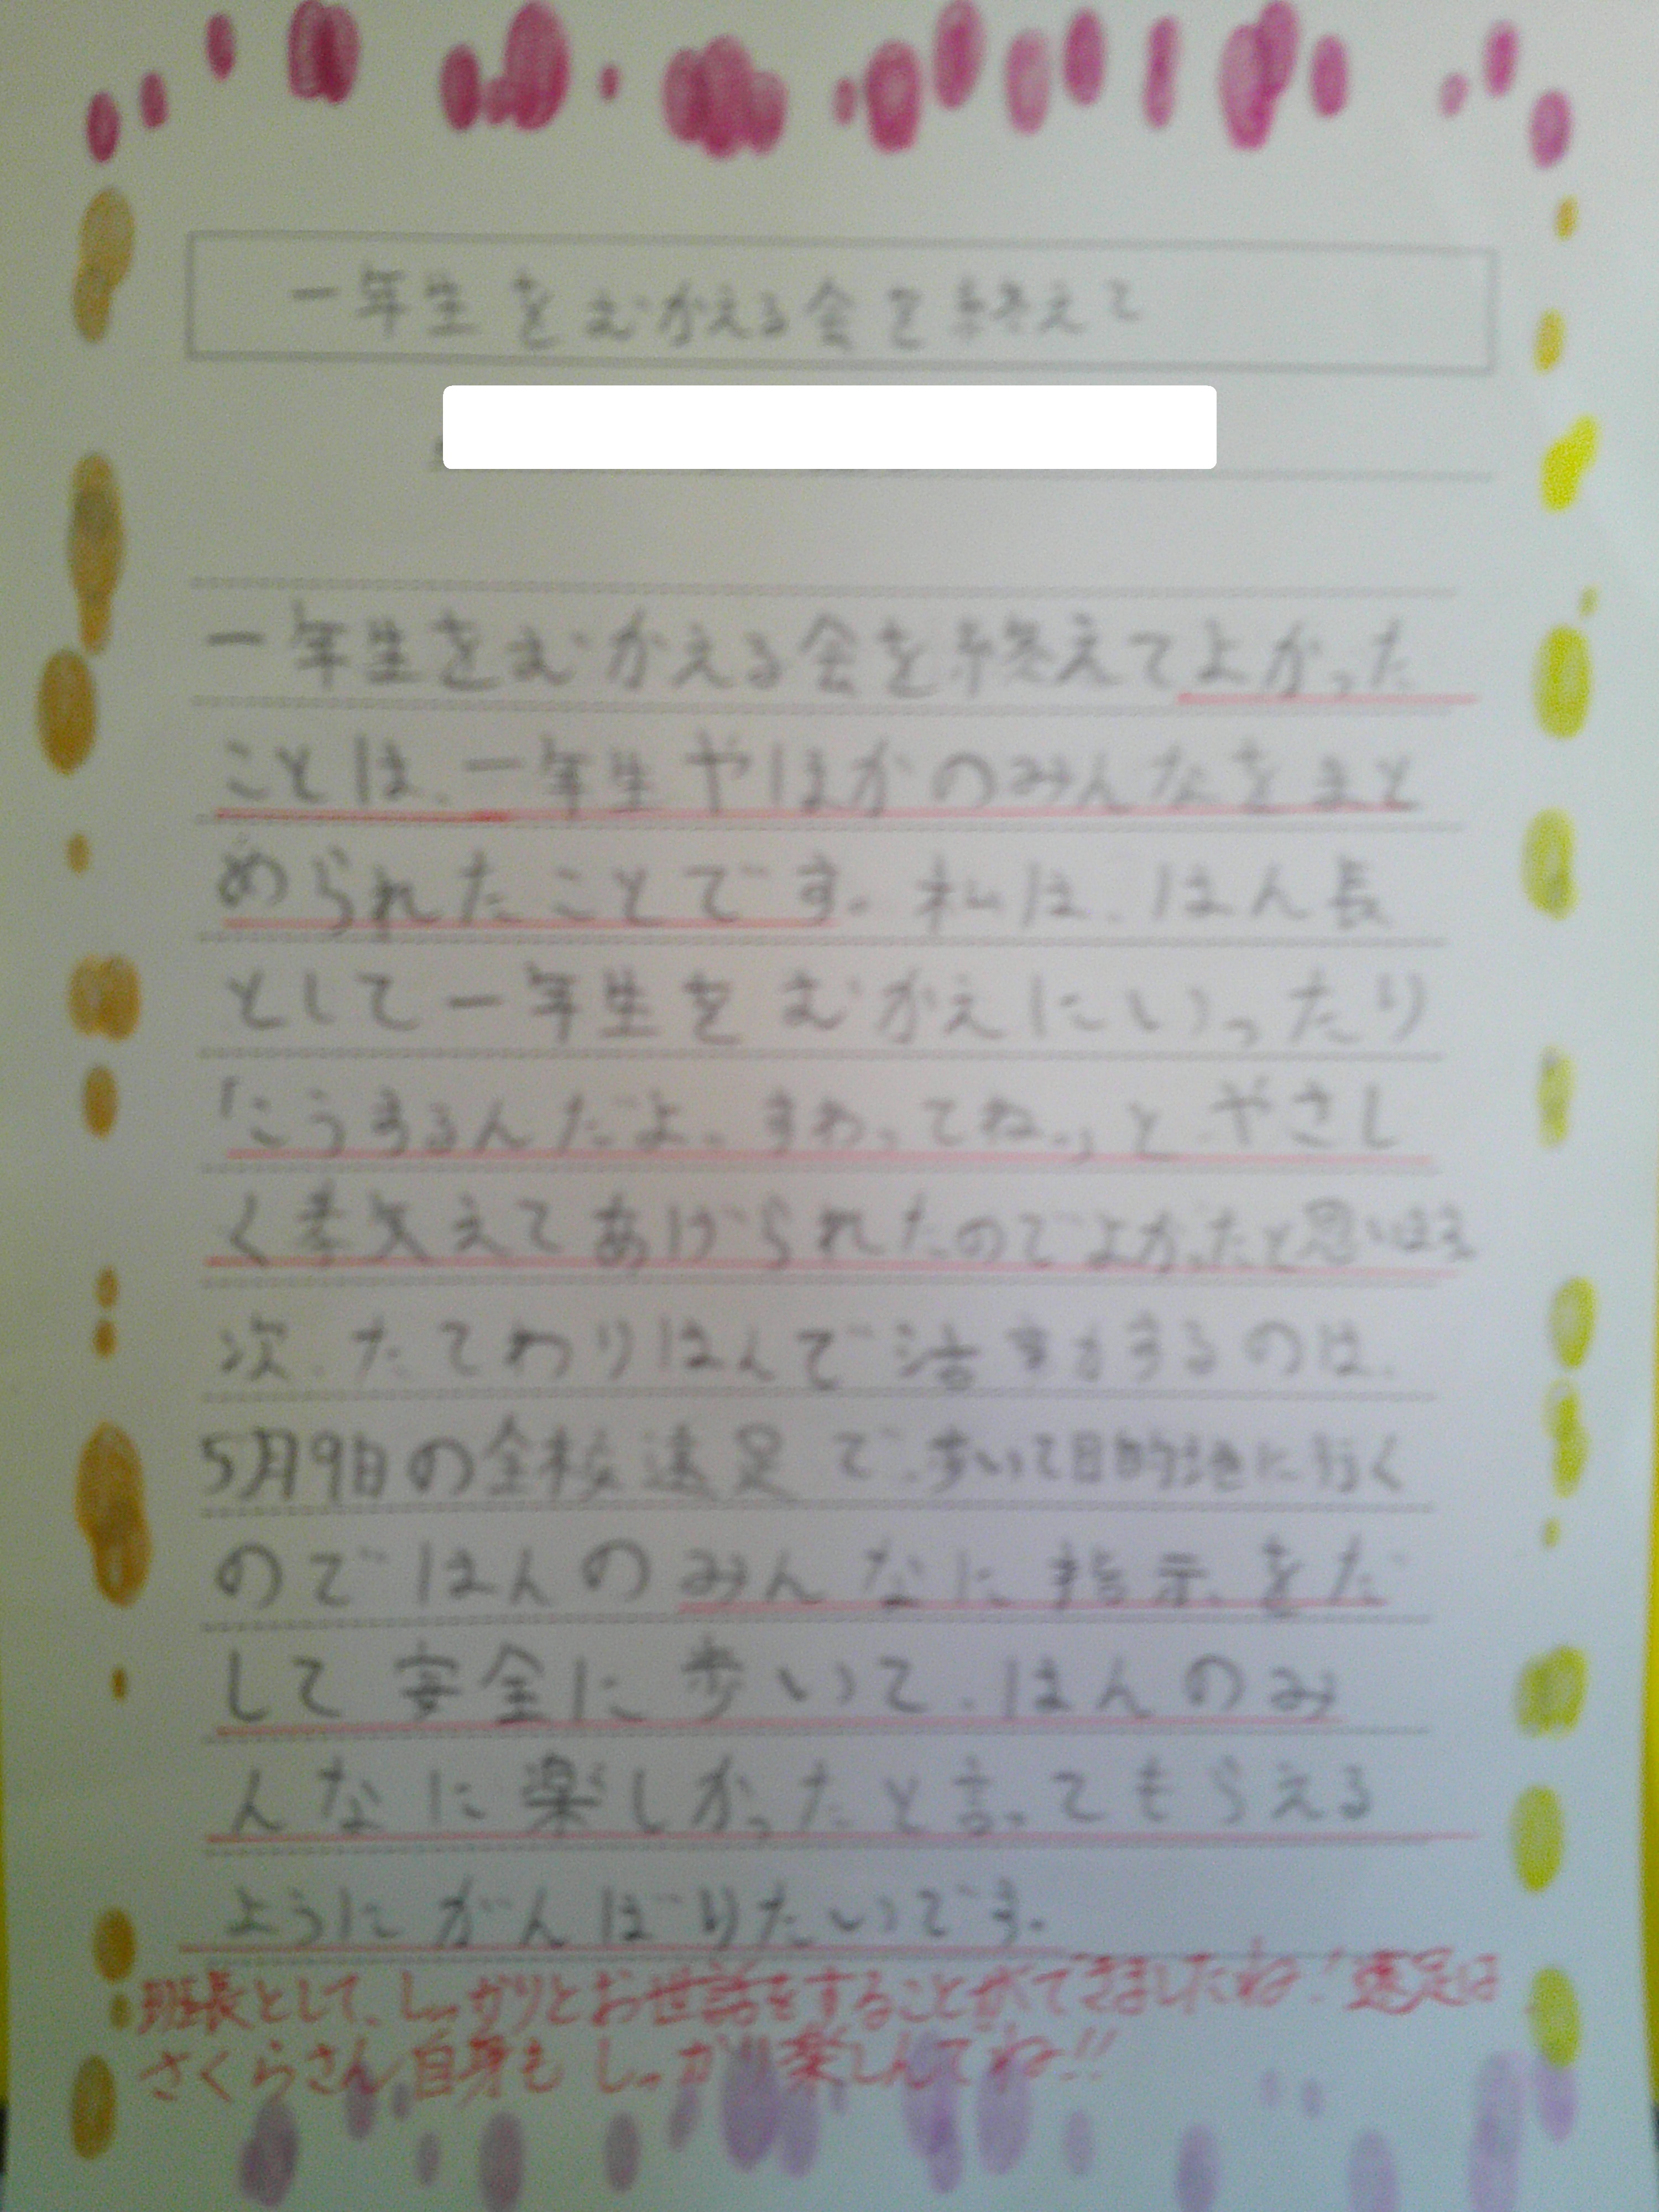 一年生をむかえる会を終えて
一年生をむかえる会を終えてよかった
ことは、一年生やほかのみんなをまと
められたことです。私は、はん長
として一年生をむかえにいったり
「こうするんだよ。すわってね。」とやさし
く教えてあげられたのでよかったと思います
次、たてわりはんで活動するのは、
5月9日の全校遠足で、歩いて目的地に行く
のではんのみんなに指示をだ
して安全に歩いて、はんのみ
んなに楽しかったと言ってもらえる
ようにがんばりたいです。
班長として、しっかりとお世話をすることができましたね！遠足は
さくらさん自身もしっかり楽しんでね!!